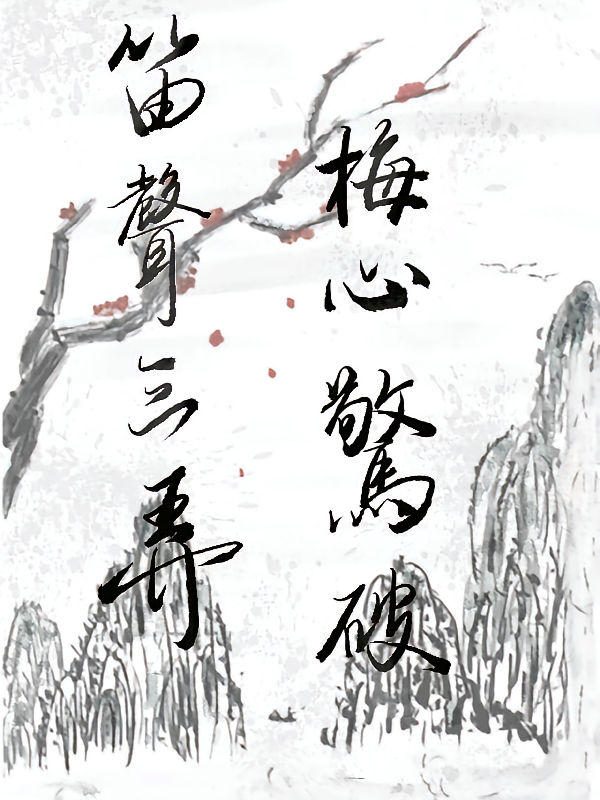 梅心驚破
笛聲三弄